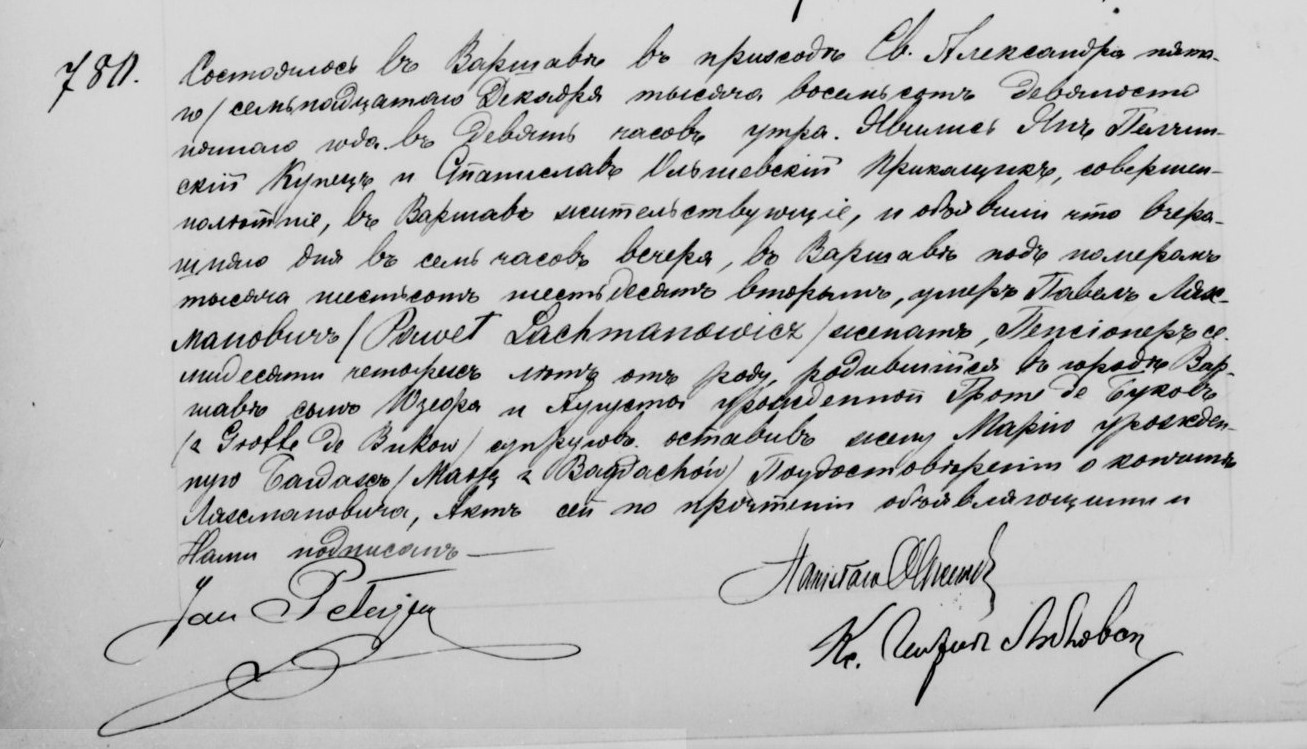 780.
Состоялось въ Варшавѣ въ приходѣ Св. Александра пята-
го/семьнадцатаго Декабря тысяча восемьсотъ девяносто
года въ девять часовъ утра. Явились Янъ
скій Купецъ и Станиславъ Ольшевскій Прикащикъ, совершен-
нолѣтніе, въ Варшавѣ жительствующіе, и объявили что вчера-
шняго дня въ семь часовъ вечера, въ Варшавѣ подъ номеромъ
тысяча шестьсотъ шестьдесятъ вторымъ, умеръ Павелъ Лях-
мановичъ (Paweł Lachmanowicz) женатъ, Пенсіонеръ се-
мидесяти четырехъ лѣтъ отъ роду, родившійся въ городѣ Вар-
шавѣ сынъ и Августы урожденной Гроте де Буковъ
(z Grotte de Bukow) супруговъ. оставивъ жену Марію урожден-
ную Багдахъ (z Bagdachów) По удостовѣреніи о кончинѣ
Ляхмановича, Актъ сей по прочтеніи объявляющими и
Нами подписанъ
Jan
Stanisław
Кс.